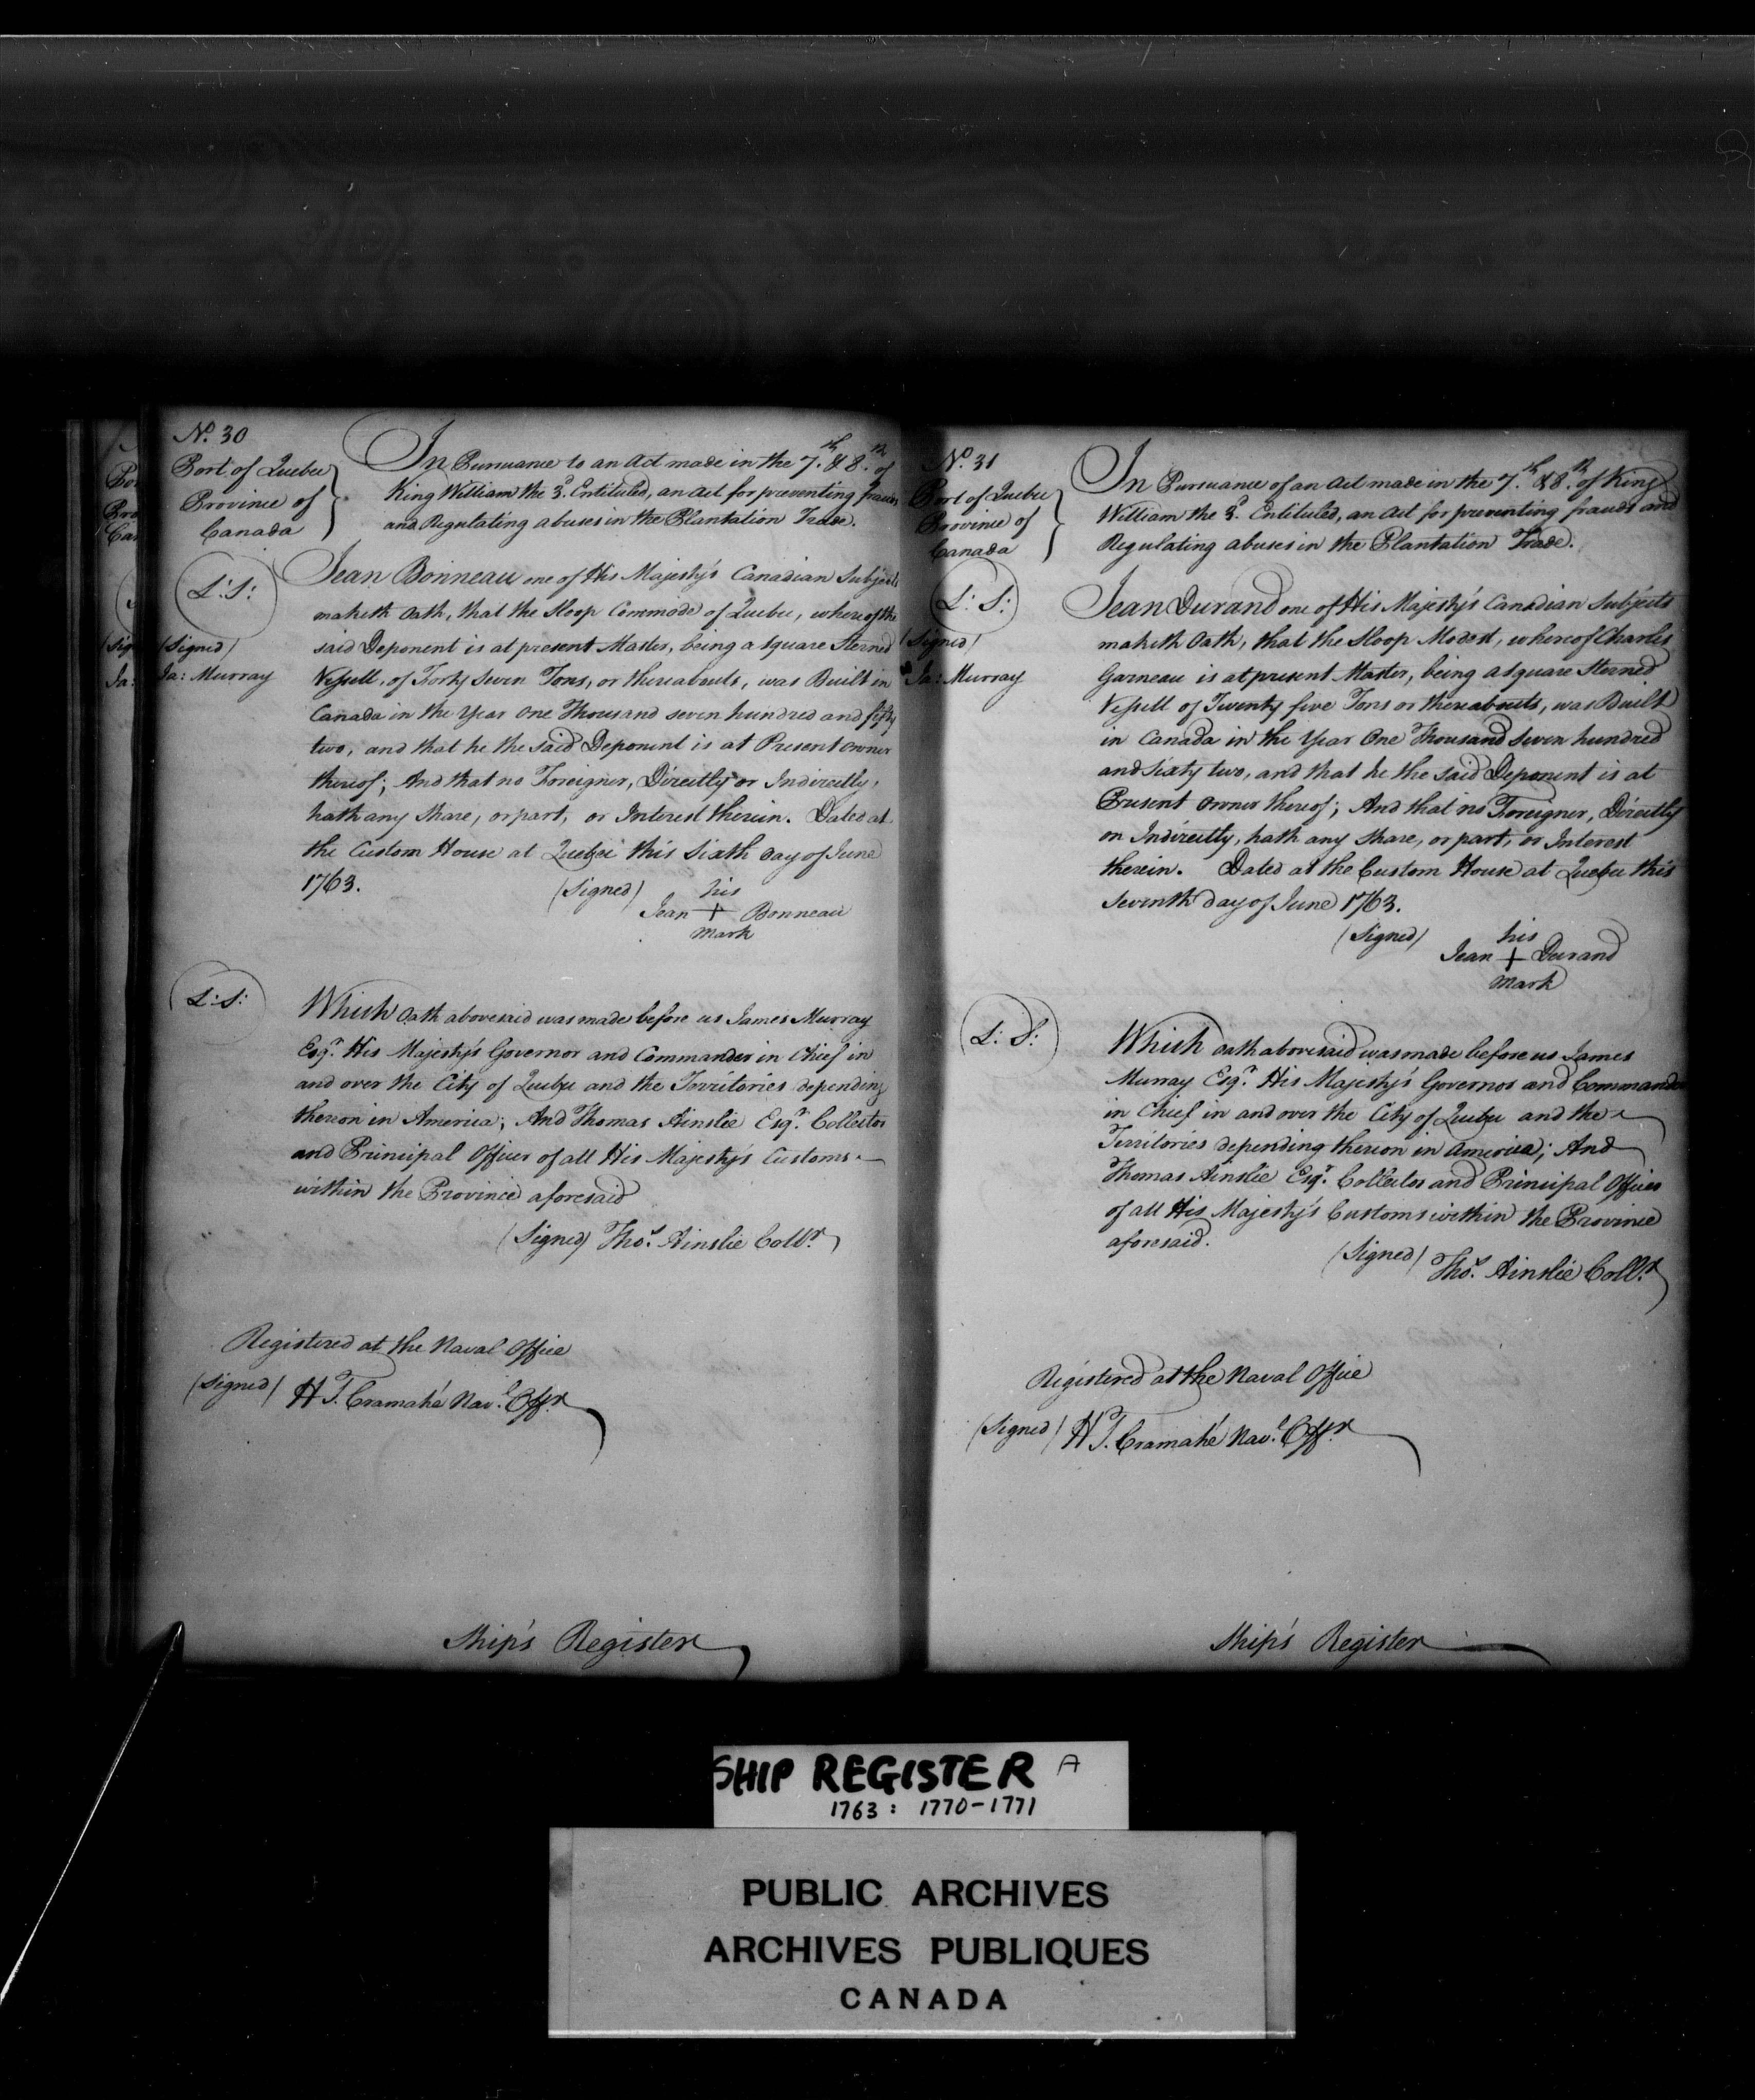 No. 30
Port of Quebec
Province of
Canada
L:S:
(Signed)
Ja: Murray
In Pursuance to an Act made in the 7.th & 8.th of
King William the 3.d Entituled, an Act for preventing frauds
and Regulating abuses in the Plantation Trade.
Jean Bonneau one of His Majesty's Canadian Subjects
maketh Oath, that the Sloop Commode of Quebec, whereof the
said Deponent is at present Master, being a square Sterned
Vessell, of Forty Seven Tons, or thereabouts, was Built in
Canada in the Year One Thousand seven hundred and fifty
two, and that he the said Deponent is at Present owner
thereof; And that no Foreigner, Directly or Indirectly,
hath any Share, or part, or Interest therein. Dated at
the Custom House at Quebec this Sixth day of June
1763.
(Signed) his
Jean + Bonneau
mark
L:S:
Which Oath abovesaid was made before us James Murray
Esq.r His Majesty's Governor and Commander in Chief in
and over the City of Quebec and the Territories depending
thereon in America; And Thomas Ainslie Esq.r Collector
and Principal Officer of all His Majesty's Customs
within the Province aforesaid
(Signed) Tho.s Ainslie Coll.r
Registered at the Naval Office
(Signed) H T. Cramahé Nav.l Off.r
Ship's Register
No. 31
Port of Quebec
Province of
Canada
L:S:
(Signed)
Ja: Murray
In Pursuance of an Act made in the 7.th & 8.th of King
William the 3.d Entituled, an Act for preventing frauds and
Regulating abuses in the Plantation Trade.
Jean Durand one of His Majesty's Canadian Subjects
maketh Oath, that the Sloop Modest, whereof Charles
Garneau is at present Master, being a square Sterned
Vessell of Twenty five Tons or thereabouts, was Built
in Canada in the Year One Thousand Seven hundred
and Sixty two, and that he the said Deponent is at
Present Owner thereof; And that no Foreigner, Directly
or Indirectly, hath any Share, or part, or Interest
therein. Dated at the Custom House at Quebec this
seventh day of June 1763.
(Signed) his
Jean + Durand
mark
L:S:
Which oath abovesaid was made before us James
Murray Esq.r His Majesty's Governor and Commander
in Chief in and over the City of Quebec and the
Territories depending thereon in America; And
Thomas Ainslie Esq.r Collector and Principal Officer
of all His Majesty's Customs within the Province
aforesaid.
(Signed) Tho.s Ainslie Coll.r
Registered at the Naval Office
(Signed) H T. Cramahé Nav.l Off.r
Ship's Register
SHIP REGISTER A
1763: 1770-1771
PUBLIC ARCHIVES
ARCHIVES PUBLIQUES
CANADA